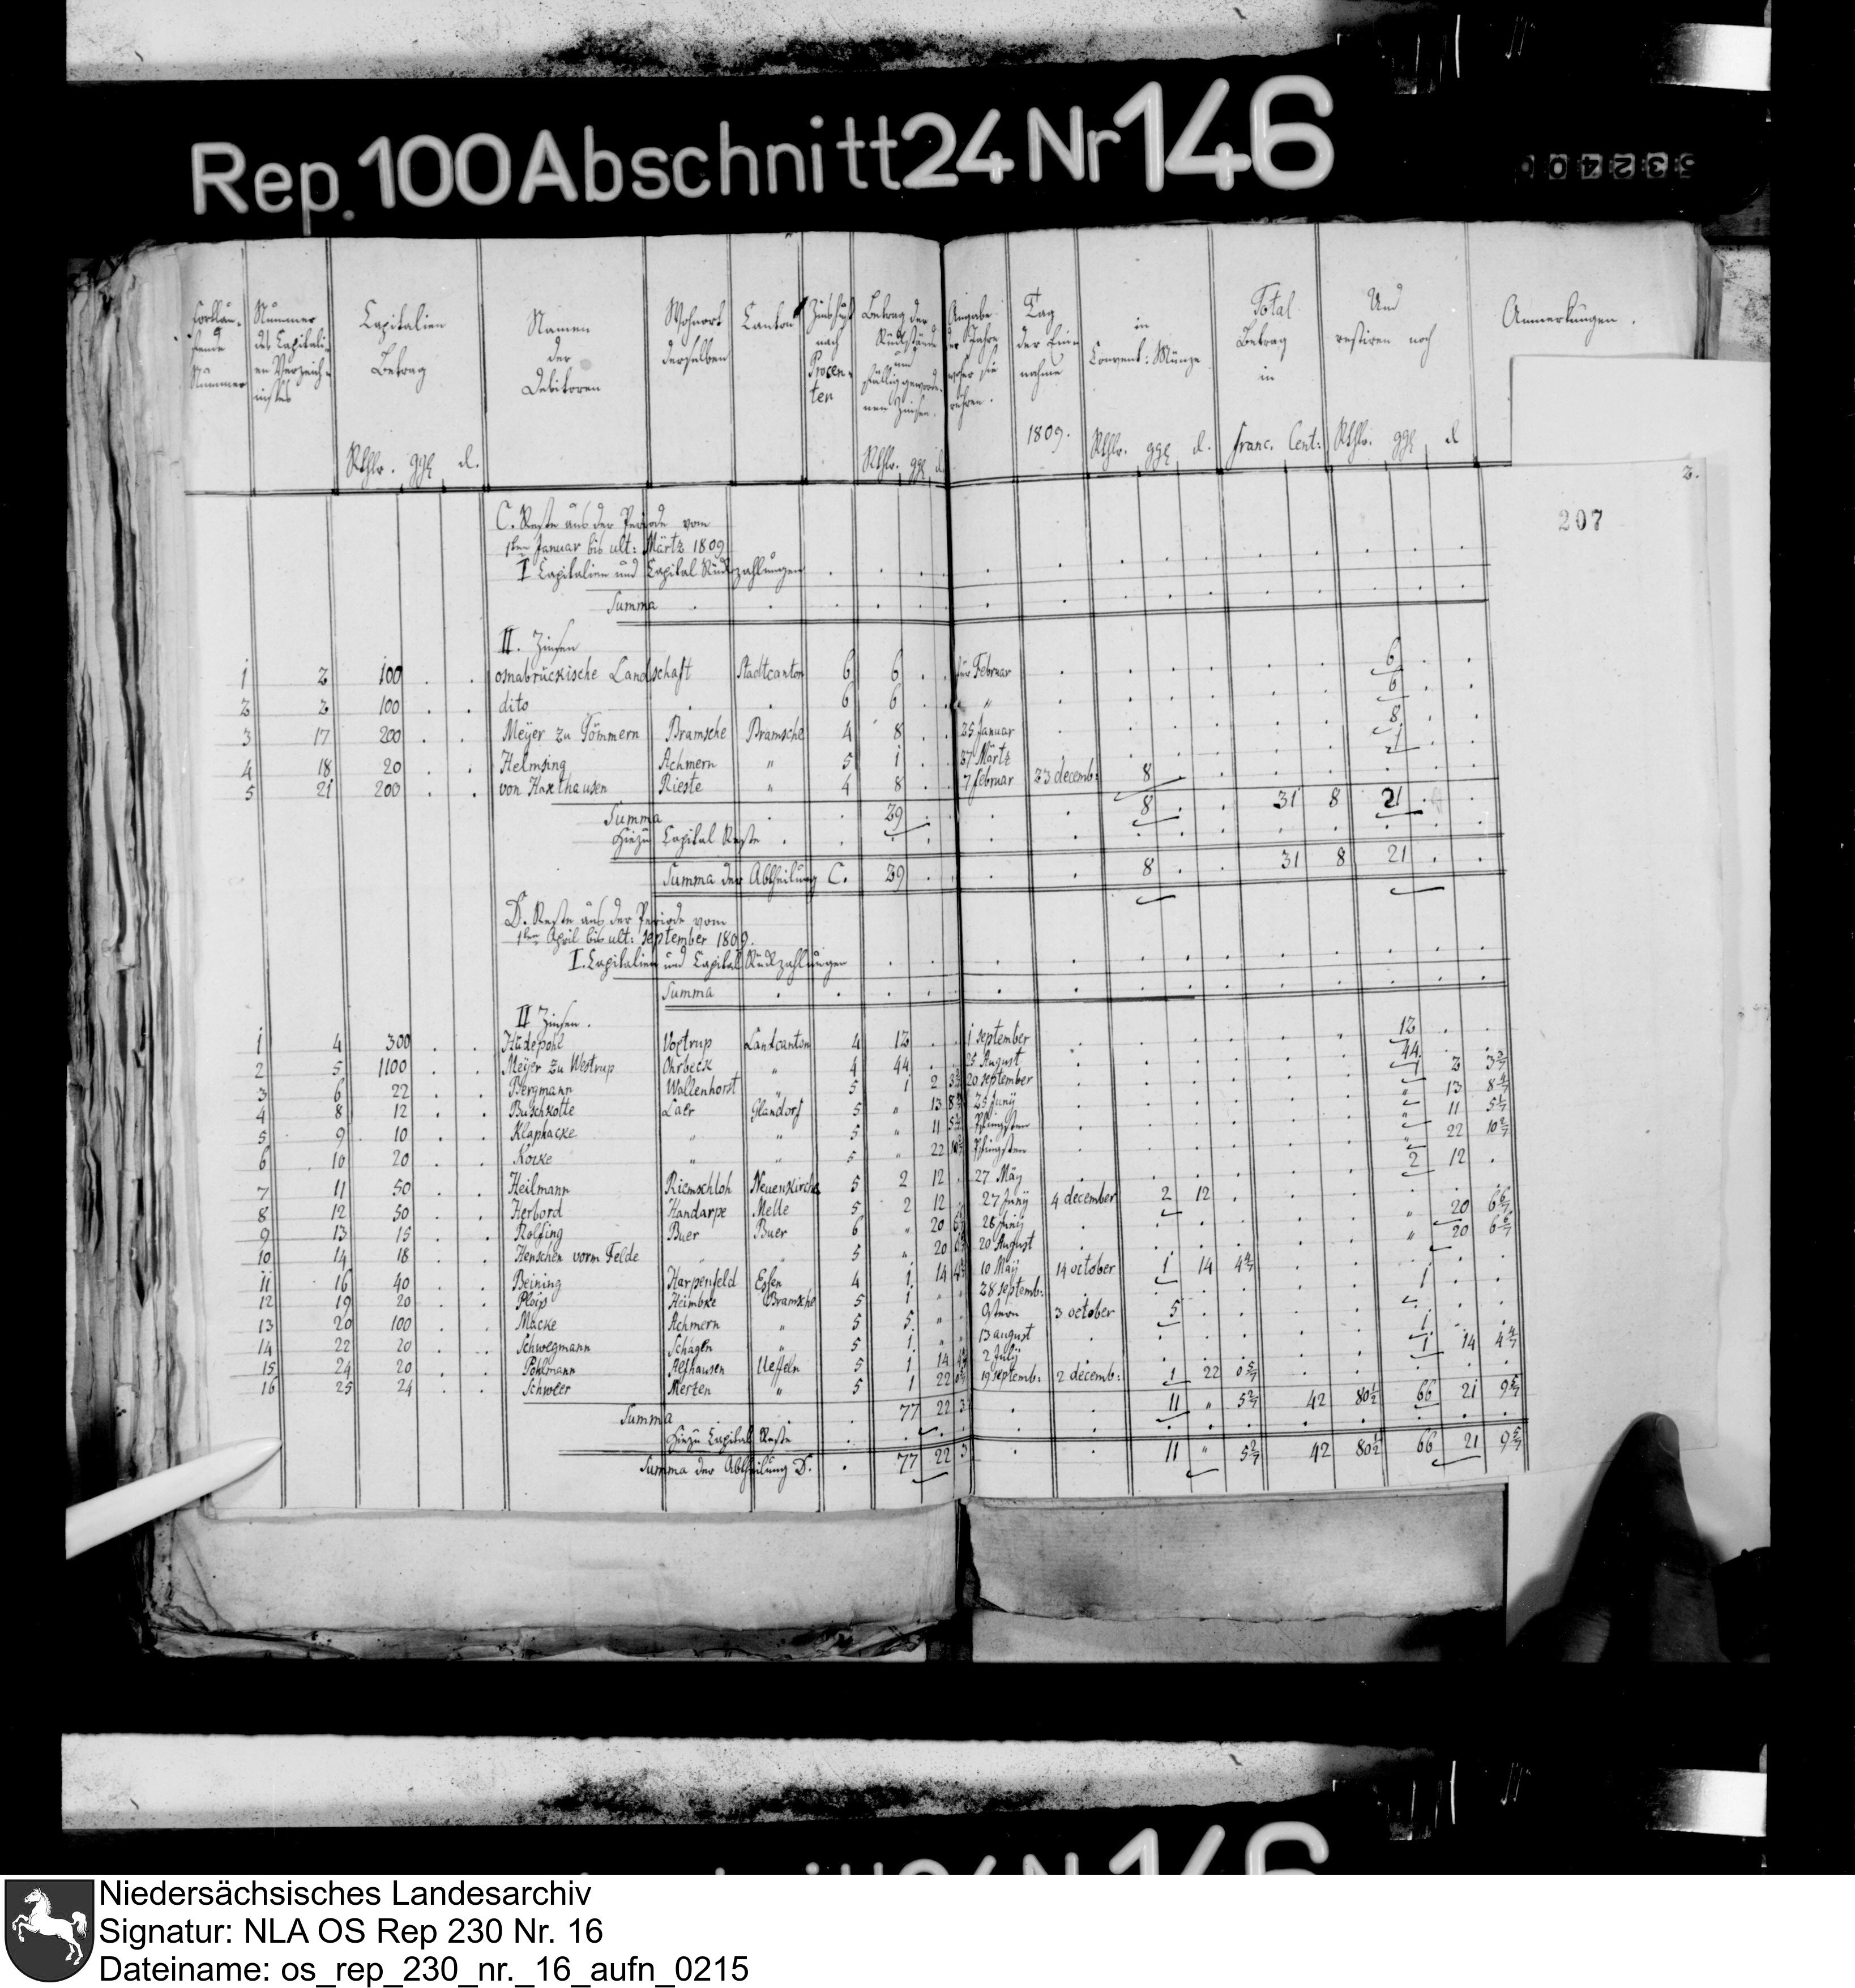 Rep. 100 Abschnitt 24 Nr 146
532400
Fortlau- Nummer Capitalien Namen Wohnort Canton Zinsfuß Betrag der Angabe Tag in Total Und Anmerkungen.
fende des Capitali- Betrag der derselben nach Rückstände der Jahre der Ein- Convent: Münze Betrag restiren noch
Nummer en Verzeich- Debitoren Procen- und woher sie nahme in
nisses ten fällig geworde- rühren.
nen Zinsen.
Rthlr. ggl d. Rthlr. ggl d 1809. Rthlr. ggl d. Franc. Cent: Rthlr. ggl d
2.
207
C. Reste aus der Periode vom
1ten Januar bis ult: Märtz 1809
I Capitalien und Capital Rückzahlungen
Summa
II. Zinsen
1 2 100 . . osnabrückische Landschaft Stadtcanton 6 6 . . für Februar 6
2 2 100 . . dito 6 6 . . " 6
3 17 200 . . Meyer zu Gömmern Bramsche Bramsche 4 8 . . 25 Januar 8
4 18 20 . . Helmsing Achmern " 5 1 . . 27 Märtz 1
5 21 200 . . von Haxthausen Rieste " 4 8 . . 7 Februar 23 decemb: 8
Summa 29 8 . . 31 8 21 . .
Hiezu Capital Reste
Summa der Abtheilung C. 29 8 . . 31 8 21 . .
D. Reste aus der Periode vom
1ten April bis ult: September 1809.
I. Capitalien und Capital Rückzahlungen
Summa
II Zinsen.
1 4 300 . . Hudepohl Voxtrup Landcanton 4 12 . . 1 september 12 . .
2 5 1100 . . Meyer zu Westrup Ohrbeck " 4 44 . . 25 August 44 . .
3 6 22 . . Bergmann Wallenhorst " 5 1 2 20 september 1 2 3 3/7
4 8 12 . . Buschkotte Laer Glandorf 5 " 13 25 Junÿ " 13 8 4/7
5 9 10 . . Klaphacke " " 5 " 11 Pfingsten " 11 5 1/7
6 10 20 . . Kocke " " 5 " 22 Pfingsten " 22 10 2/7
7 11 50 . . Heilmann Riemschloh Neuenkirche 5 2 12 . 27 Mäy 2 12 .
8 12 50 . . Herbord Handarpe Melle 5 2 12 . 27 Junÿ 4 december 2 12 .
9 13 15 . . Rolfing Buer Buer 6 " 20 26 Junÿ " 20 6 6/7
10 14 18 . . Henschen vorm Felde " " 5 " 20 20 August " 20 6 6/7
11 16 40 . . Beining Harpenfeld Essen 4 1 14 10 Maÿ 14 october 1 14 4 4/7
12 19 20 . . Ploip Heimbke Bramsche 5 1 " " 28 septemb: 1 . .
13 20 100 . . Macke Achmern " 5 5 " " Ostern 3 october 5 . .
14 22 20 . . Schwegmann Schagen " 5 1 " " 13 august 1 . .
15 24 20 . . Pohlmann Alfhausen Ueffeln 5 1 14 2 Julÿ 1 14 4 4/7
16 25 24 . . Schröer Merzen " 5 1 22 19 septemb: 2 decemb: 1 22 0 5/7
Summa 77 22 3 11 " 5 2/7 42 80 1/2 66 21 9 5/7
Hiezu Capital Reste
Summa der Abtheilung D. 77 22 3 11 " 5 2/7 42 80 1/2 66 21 9 5/7
Niedersächsisches Landesarchiv
Signatur: NLA OS Rep 230 Nr. 16
Dateiname: os_rep_230_nr._16_aufn_0215